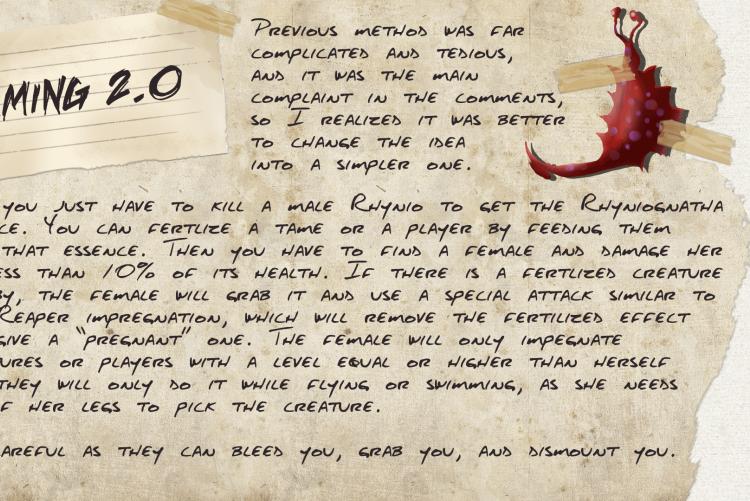 MING 2.0
Previous method was far
complicated and tedious,
and it was the main
complaint in the comments,
so I realized it was better
to change the idea
into a simpler one.
you just have to kill a male Rhynio to get the Rhyniognatha
ce. You can fertlize a tame or a player by feeding them
that essence. Then you have to find a female and damage her
ess than 10% of its health. If there is a fertlized creature
by, the female will grab it and use a special attack similar to
Reaper impregnation, which will remove the fertilized effect
give a "pregnant" one. The female will only impegnate
ures or players with a level equal or higher than herself
they will only do it while flying or swimming, as she needs
f her legs to pick the creature.
areful as they can bleed you, grab you, and dismount you.